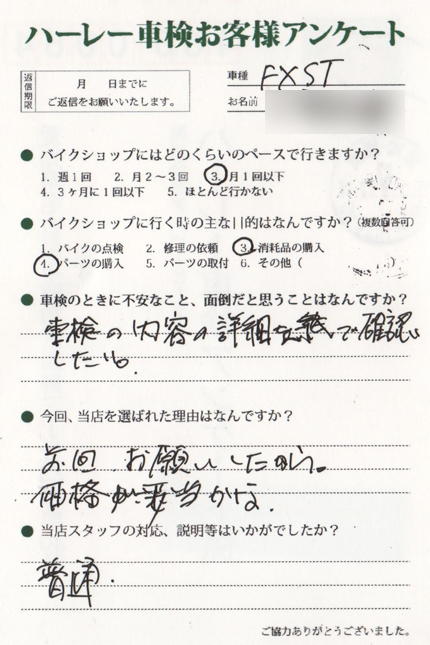 ハーレー車検お客様アンケート
返信期限
月　日までに
ご返信をお願いいたします。
車種 FXST
お名前
● バイクショップにはどのくらいのペースで行きますか？
1. 週1回　2. 月2～3回　3. 月1回以下
4. 3ヶ月に1回以下　5. ほとんど行かない
● バイクショップに行く時の主な目的はなんですか？（複数回答可）
1. バイクの点検　2. 修理の依頼　3. 消耗品の購入
4. パーツの購入　5. パーツの取付　6. その他（
● 車検のときに不安なこと、面倒だと思うことはなんですか？
車検の内容の詳細を紙で確認
したい。
● 今回、当店を選ばれた理由はなんですか？
前回、お願いしたから。
価格が妥当かな.
● 当店スタッフの対応、説明等はいかがでしたか？
普通.
ご協力ありがとうございました。